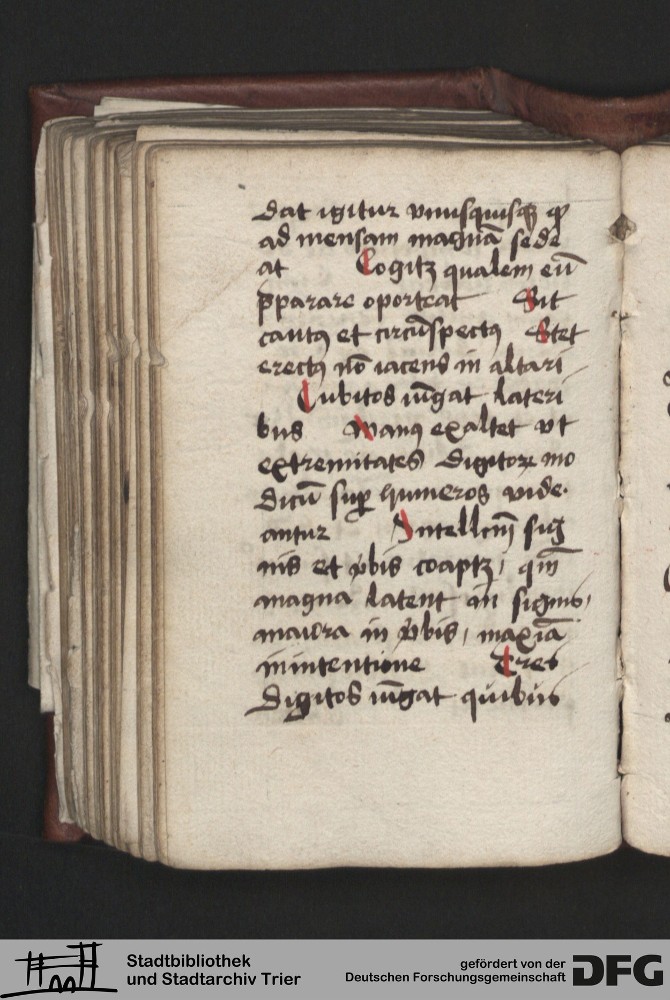 dat igitur vnusquisqꝫ ꝙ
ad mensam magnā sede
at Cogitꝫ qualem eū
p̄parare oporteat Sit
cautꝰ et circūspectꝰ Stet
erectꝰ nō iacens in altari
Cubitos iūgat lateri
bus Manꝰ exaltet vt
extremitates digitoꝝ mo
dicū suꝑ humeros vide-
antur Intellcm̄ sig
nis et v̓bis coaptꝫ, qm̄
magna latent in signis,
maiora in v̓bis, maxīa
in intentione Tres
digitos iūgat quibus
Stadtbibliothek
und Stadtarchiv Trier
gefördert von der
Deutschen Forschungsgemeinschaft
DFG